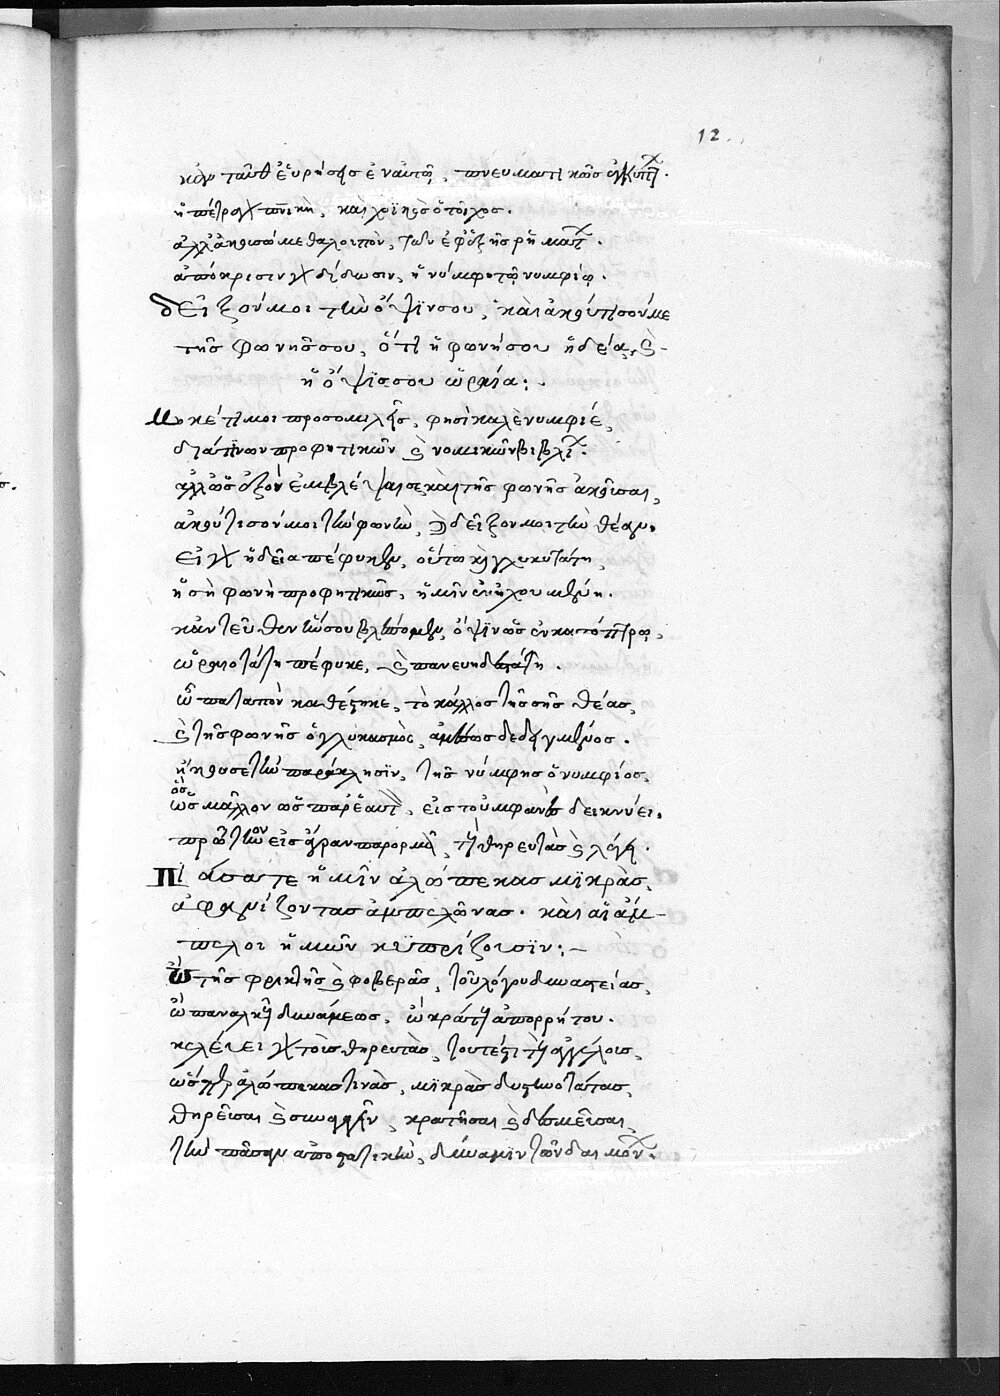 12
κἂν ταῦθ' εὑρήσῃς ἐν αὐτῷ, πνευματικῶς
ἡ πέτρα γὰρ πνικὴ, καὶ χοϊκὸς ὁ τοῖχος.
ἀλλ' ἀκουσώμεθα λοιπὸν, τῶν ἐφεξῆς ῥημάτ.
ἀπόκρισιν γὰρ δίδωσιν, ἡ νύμφη τῷ νυμφίῳ.
δεῖξόν μοι τὴν ὄψιν σου, καὶ ἀκούτισόν με
τῆς φωνῆς σου, ὅτι ἡ φωνή σου ἡδεῖα, καὶ
ἡ ὄψις σου ὡραία:
Μηκέτι μοι προσομιλῇς, φησὶ καλὲ νυμφίε,
διά τινων προφητικῶν καὶ νομικῶν βιβλί.
ἀλλ' ὡς ἐμβλέψαι σε καὶ τῆς φωνῆς ἀκοῦσαι,
ἀκούτισόν μοι τὴν φωνὴν, καὶ δεῖξόν μοι τὴν θέαν.
εἰ γὰρ ἡδεῖα πέφυκεν, οὕτω καὶ γλυκυτάτη,
ἡ σὴ φωνὴ προφητικῶς, ἡμῖν ἐνηχουμένη.
κἂν τεῦθεν ὥς σου βλέπομεν, ὄψιν ὡς ἐν κατόπτρῳ,
ὡραιοτάτη πέφυκε, καὶ πανευηδεστάτη.
ὦ ποταπὸν καθέστηκε, τὸ κάλλος τῆς σῆς θέας,
καὶ τῆς φωνῆς ὁ γλυκασμὸς, ἀμέσως δεδειγμένος.
ἤκουσε τὴν παράκλησιν, τῆς νύμφης ὁ νυμφίος,
ὃς μᾶλλον ὡς παρ' ἑαυτ, εἰς τοὐμφανὲς δεικνύει.
πρὸς τὴν εἰς ἄγραν παρορμᾷ, τοὺς θηρευτὰς καὶ λέγει.
Πιάσατε ἡμῖν ἀλώπεκας μικρὰς,
ἀφανίζοντας ἀμπελῶνας. καὶ αἱ ἄμ-
πελοι ἡμῶν κυπρίζουσιν:
Ὢ τῆς φρικτῆς καὶ φοβερᾶς, τοῦ λόγου δυναστείας,
ὢ παναλκοῦς δυνάμεως, ὢ κράτους ἀπορρήτου.
κελεύει γὰρ τοῖς θηρευταῖς, τουτέστι τοῖς ἀγγέλοις,
ὥσπερ ἀλώπεκας τινὰς, μικρὰς δυστηνοτάτας,
θηρεῦσαι καὶ συναγαγεῖν, κρατῆσαι καὶ δεσμεῦσαι,
τὴν πᾶσαν ἀποστατικὴν, δύναμιν τῶν δαιμόν.